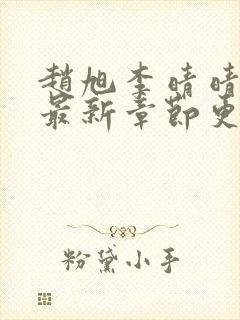 趙旭李晴晴
最新章節更
粉黛小手